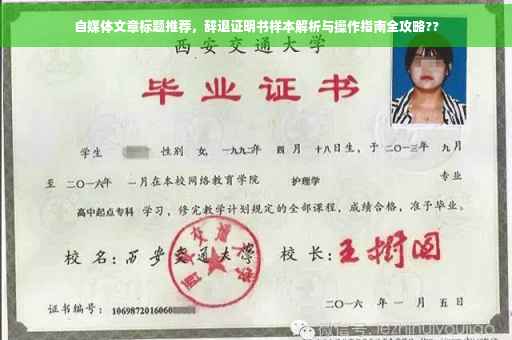 自媒体文章标题推荐，辞退证明书样本解析与操作指南全攻略??
西安交通大学
毕业证书
学生 性别 女, 一九九二年 四 月 十八日生，于 二〇一三年 九月
至 二〇一六年 一月在本校网络教育学院 护理学 专业
高中起点专科 学习，修完教学计划规定的全部课程，成绩合格，准予毕业。
校 名：西安交通大学 校 长：王树国
西安交通大学
证书编号： 1069872016060
二〇一六 年 一 月 五 日
微信号: jezhinuiyoujiao